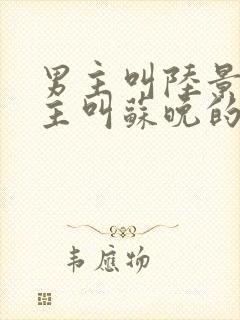 男主叫陸景
主叫蘇晚的
韦應物